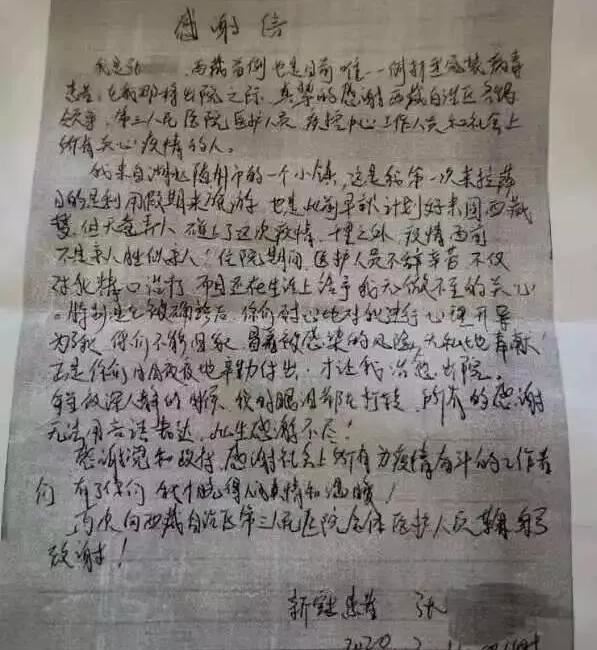 感谢信
我是张 西藏首例也是目前唯一一例新型冠状病毒
患者，在我即将出院之际，真挚的感谢西藏自治区各级
领导，第三人民医院医护人员 疾控中心工作人员和社会上
所有关心疫情的人。
我来自湖北随州市的一个小镇，这是我第一次来拉萨
目的是利用假期来旅游，也是此前早就计划好来圆西藏
梦，但天意弄人 碰上了这次疫情，千里之外，疫情面前
不是亲人胜似亲人！住院期间，医护人员不辞辛苦 不仅
对我精心治疗 而且还在生活上给予我无微不至的关心
。特别是在被确诊后，你们耐心地对我进行心理开导
为了我，你们不能回家，冒着被感染的风险，无私地奉献！
正是你们日夜夜地辛勤付出，才让我治愈出院。
每当夜深人静的时候，我的眼泪都在打转，所有的感谢
无法用言语表达，此生感谢不尽！
感谢党和政府，感谢社会上所有为疫情奋斗的工作者
们 有了你们 我才晓得人间真情和温暖！
再次向西藏自治区第三人民医院全体医护人员鞠躬
致谢！
新冠患者 张
2020.2